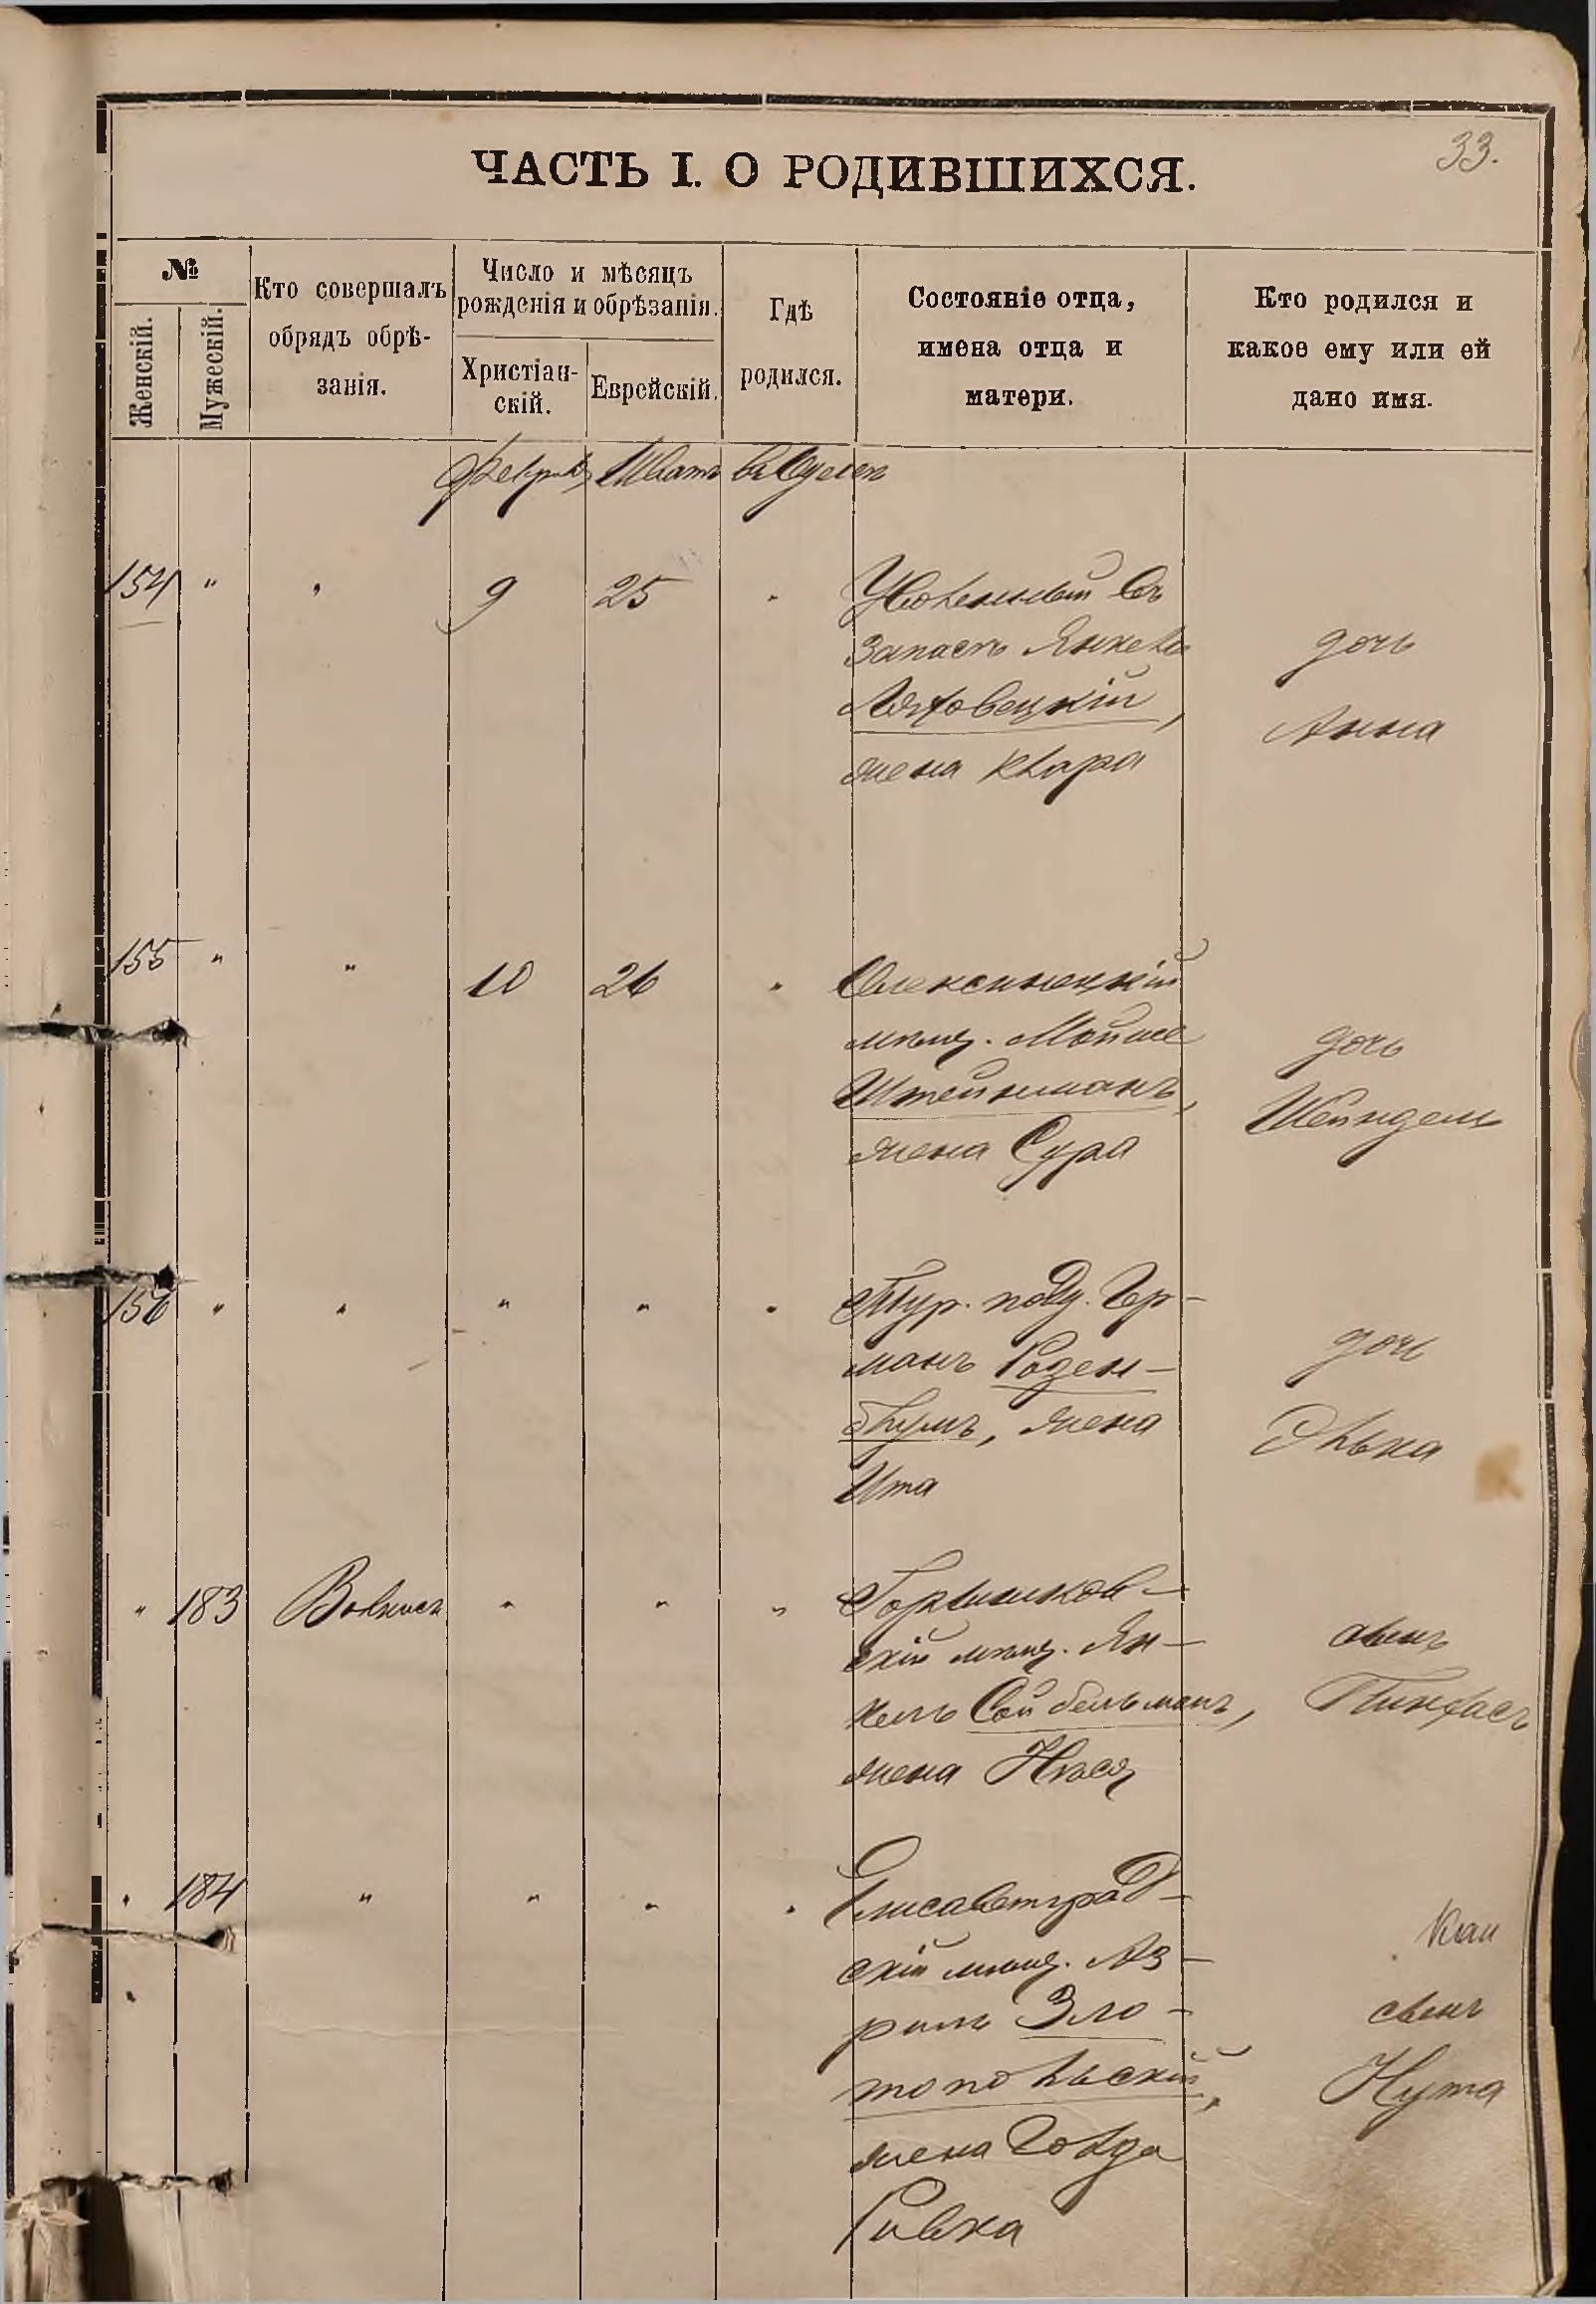 33.
ЧАСТЬ I. О РОДИВШИХСЯ.
№
Женскій.
Мужескій.
Кто совершалъ
обрядъ обрѣ-
занія.
Число и мѣсяцъ
рожденія и обрѣзанія.
Христіан-
скій.
Еврейскій.
Гдѣ
родился.
Состояніе отца,
имена отца и
матери.
Кто родился и
какое ему или ей
дано имя.
Шватъ
154 " " 9 25 "
Уволенный въ
запасъ Янкель
Ляховецкій,
жена Клара
дочь
Анна
155 " " 10 26 "
Олексинецкій
мѣщ. Мойше
Штейнманъ,
жена Сура
дочь
Шейндель
156 " " " " "
Тур. подд. Гер-
манъ Розен-
блумъ, жена
Ита
дочь
Элька
" 183 " " "
скій мѣщ. Ян-
кель Сойбельманъ,
жена Нься
сынъ
Пинхасъ
" 184 " " " "
Елисаветград-
скій мѣщ. Аз-
риль Зло-
топольскій,
жена Голда
Ривка
сынъ
Нута